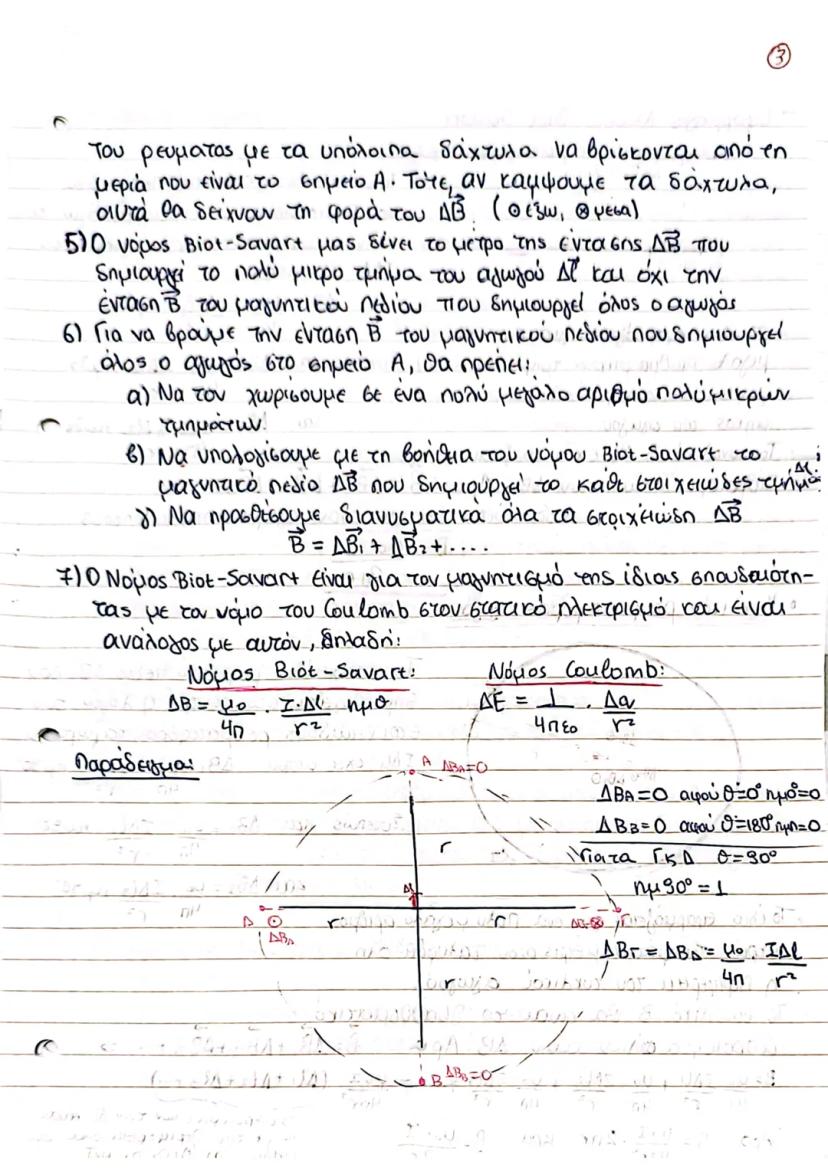 3
του ρευματος με τα υπόλοιπα δάχτυλα να βρίσκονται από τη
μεριά που είναι το σημείο Α. Τότε, αν καμψουμε τα δάχτυλα,
αυτά θα δείχνουν τη φορά του ΔB⃗. (⊙ έξω, ⊗ μεσα)
5) Ο νόμος Biot-Savart μας δίνει το μετρο της έντασης ΔB⃗ που
δημιουργεί το πολύ μικρο τμήμα του αγωγού Δl⃗ και όχι την
ένταση B⃗ του μαγνητικού πεδίου που δημιουργεί όλος ο αγωγός
6) Για να βρούμε την ένταση B⃗ του μαγνητικού πεδίου που δημιουργεί
όλος ο αγωγός στο σημείο Α, θα πρέπει:
α) Να τον χωρίσουμε σε ένα πολύ μεγάλο αριθμό πολύ μικρών
τμημάτων.
β) Να υπολογίσουμε με τη βοήθεια του νόμου Biot-Savart το
μαγνητικό πεδίο ΔB⃗ που δημιουργεί το κάθε στοιχειώδες τμήμα Δl
γ) Να προσθέσουμε διανυσματικά όλα τα στοιχειώδη ΔB⃗
B⃗ = ΔB⃗₁ + ΔB⃗₂ + ....
7) Ο Νόμος Biot-Savart είναι για τον μαγνητισμό της ίδιας σπουδαιότη-
τας με τον νόμο του Coulomb στον στατικό ηλεκτρισμό και είναι
ανάλογος με αυτόν, δηλαδή:
Νόμος Biot-Savart: Νόμος Coulomb:
ΔΒ = μο/4π · I·Δl/r² ημθ ΔΕ = 1/4πεο · Δq/r²
Παράδειγμα:
Α ΔΒΑ=0
ΔΒΑ=0 αφού θ=0° ημ0=0
ΔΒΒ=0 αφού θ=180° ημπ=0
r Για τα Γ κ Δ θ=90°
ημ90°=1
Δl
Δ ⊙ ΔΒΔ r r ⊗ Γ
ΔΒΓ = ΔΒΔ = μο/4π · ΙΔl/r²
r
Β ΔΒΒ=0